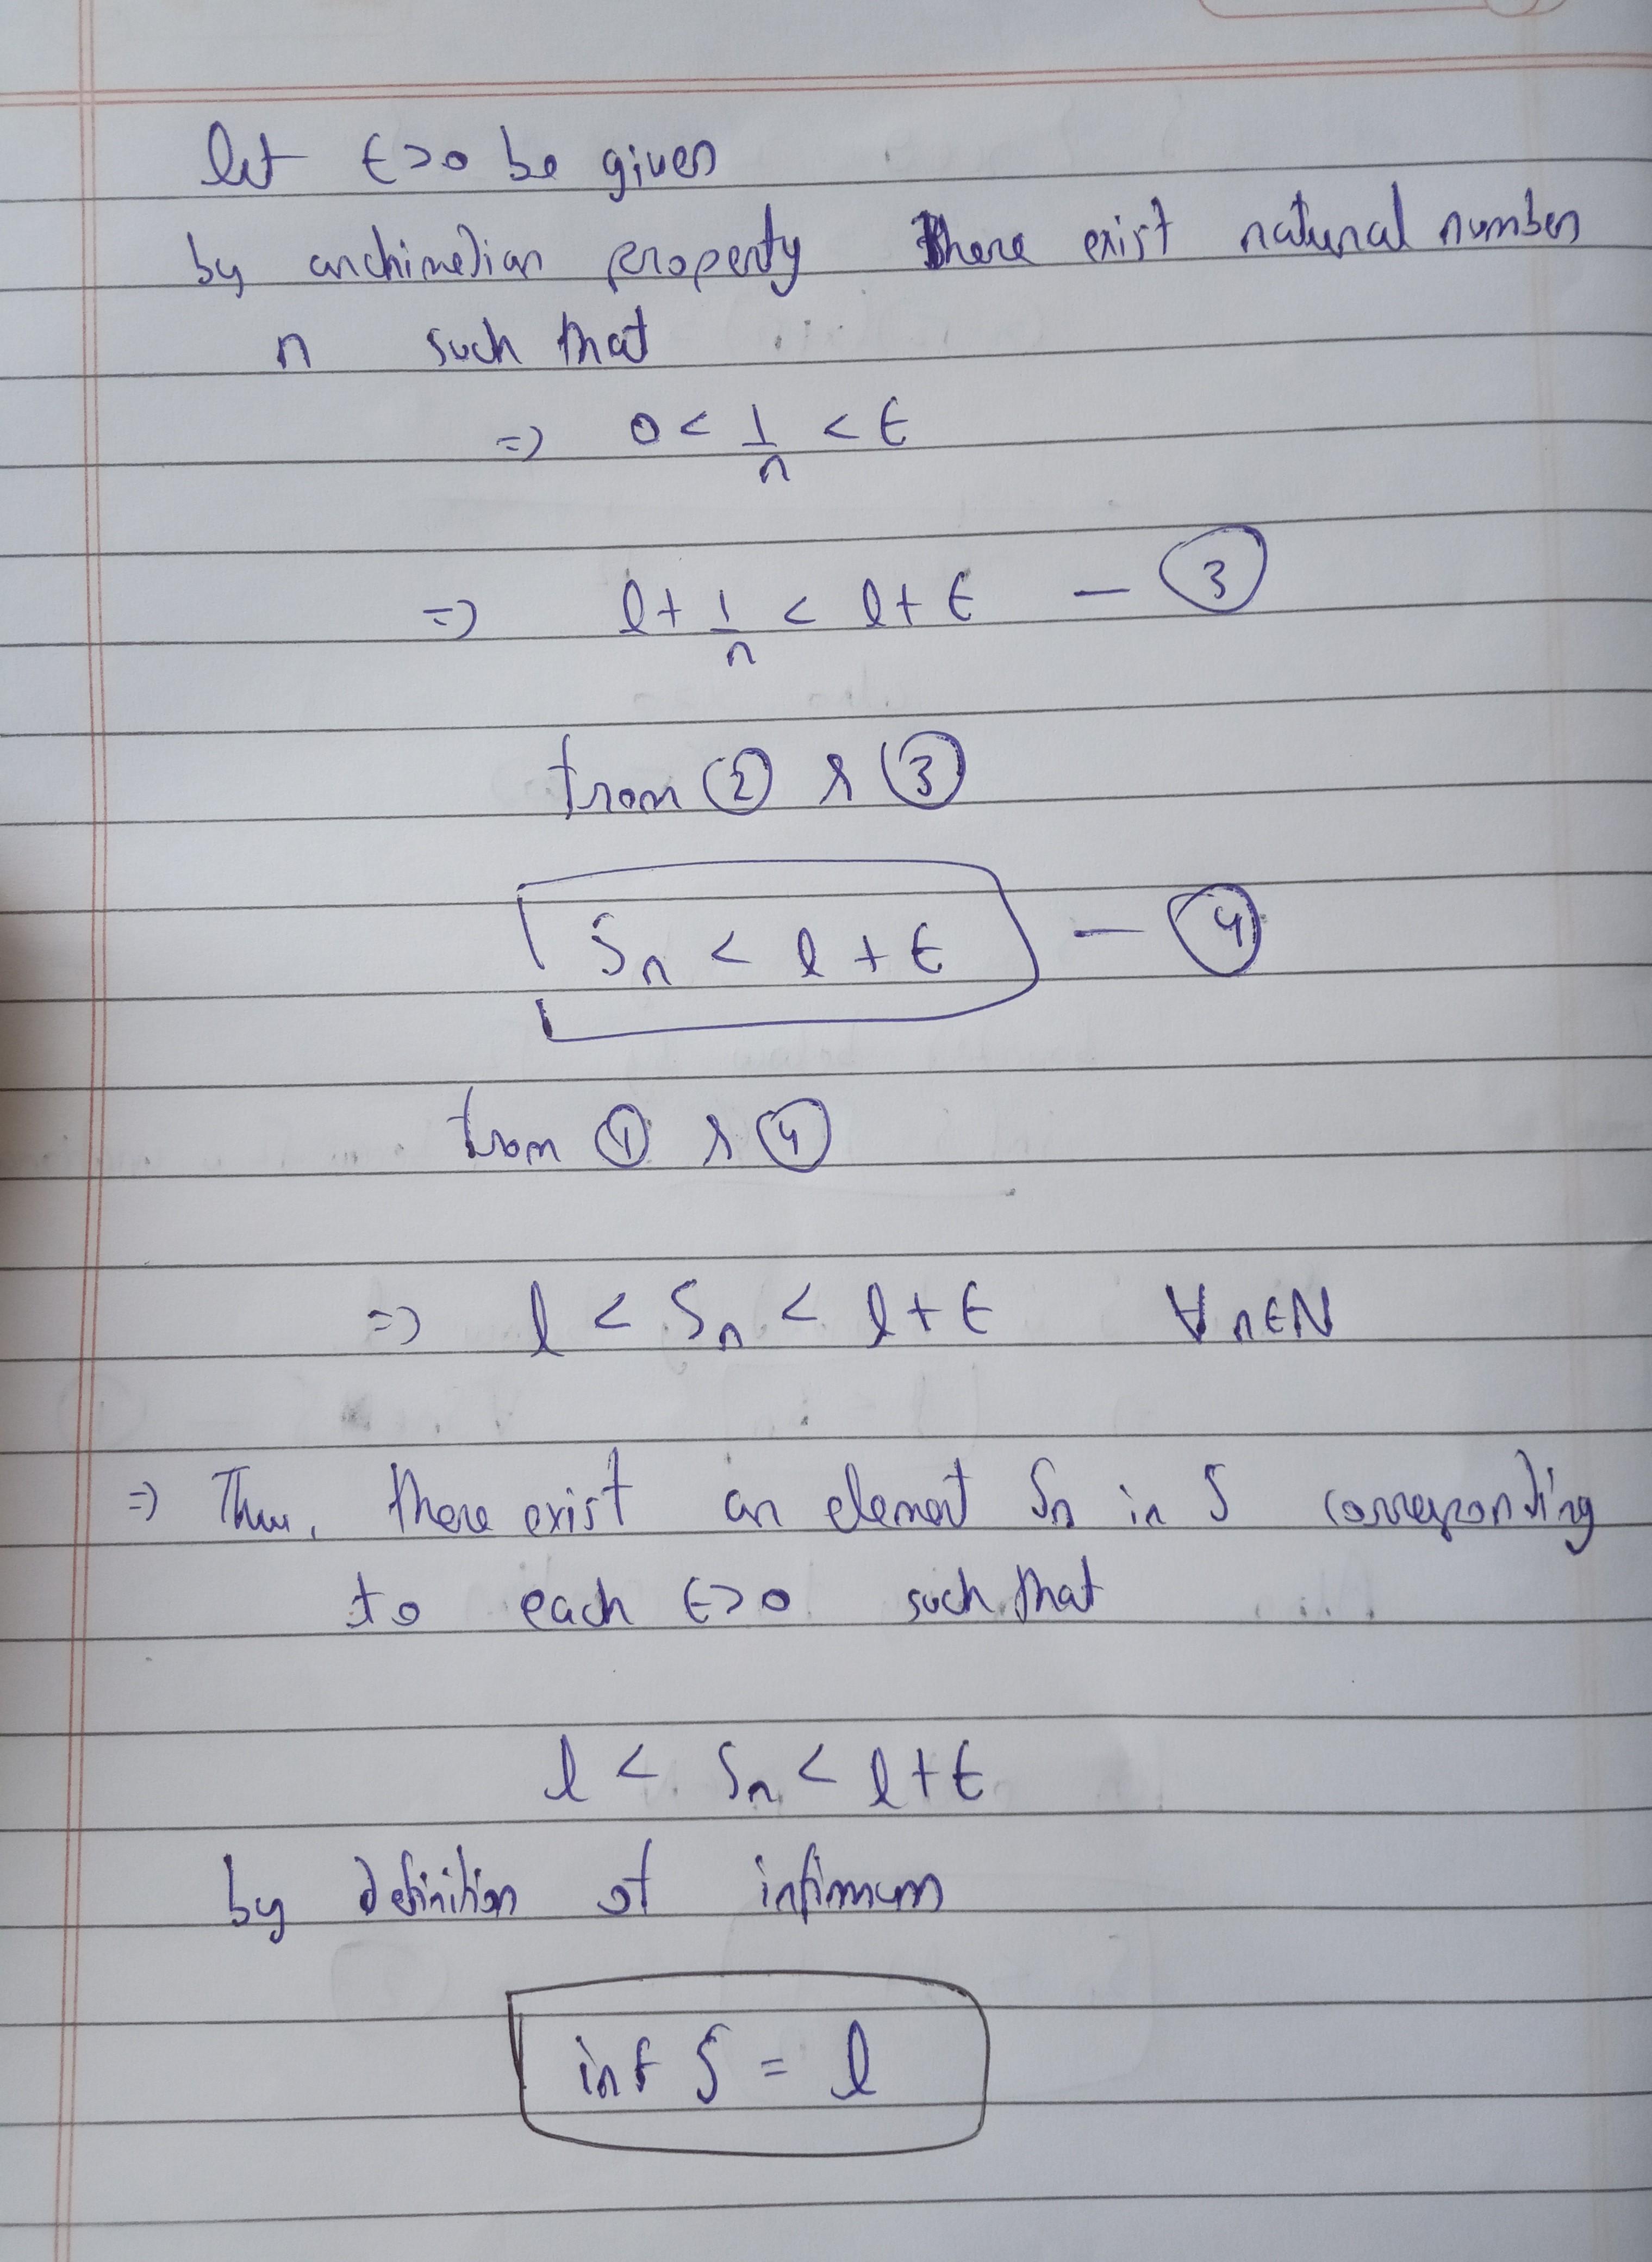 let ϵ>0 be given
by archimedian property there exist natural number
n such that
=> 0 < 1/n < ϵ
=> l + 1/n < l + ϵ — ③
from ② & ③
Sn < l + ϵ — ④
from ① & ④
=> l < Sn < l + ϵ ∀ n∈N
=> Thus, there exist an element Sn in S corresponding
to each ϵ>0 such that
l < Sn < l + ϵ
by definition of infimum
inf S = l